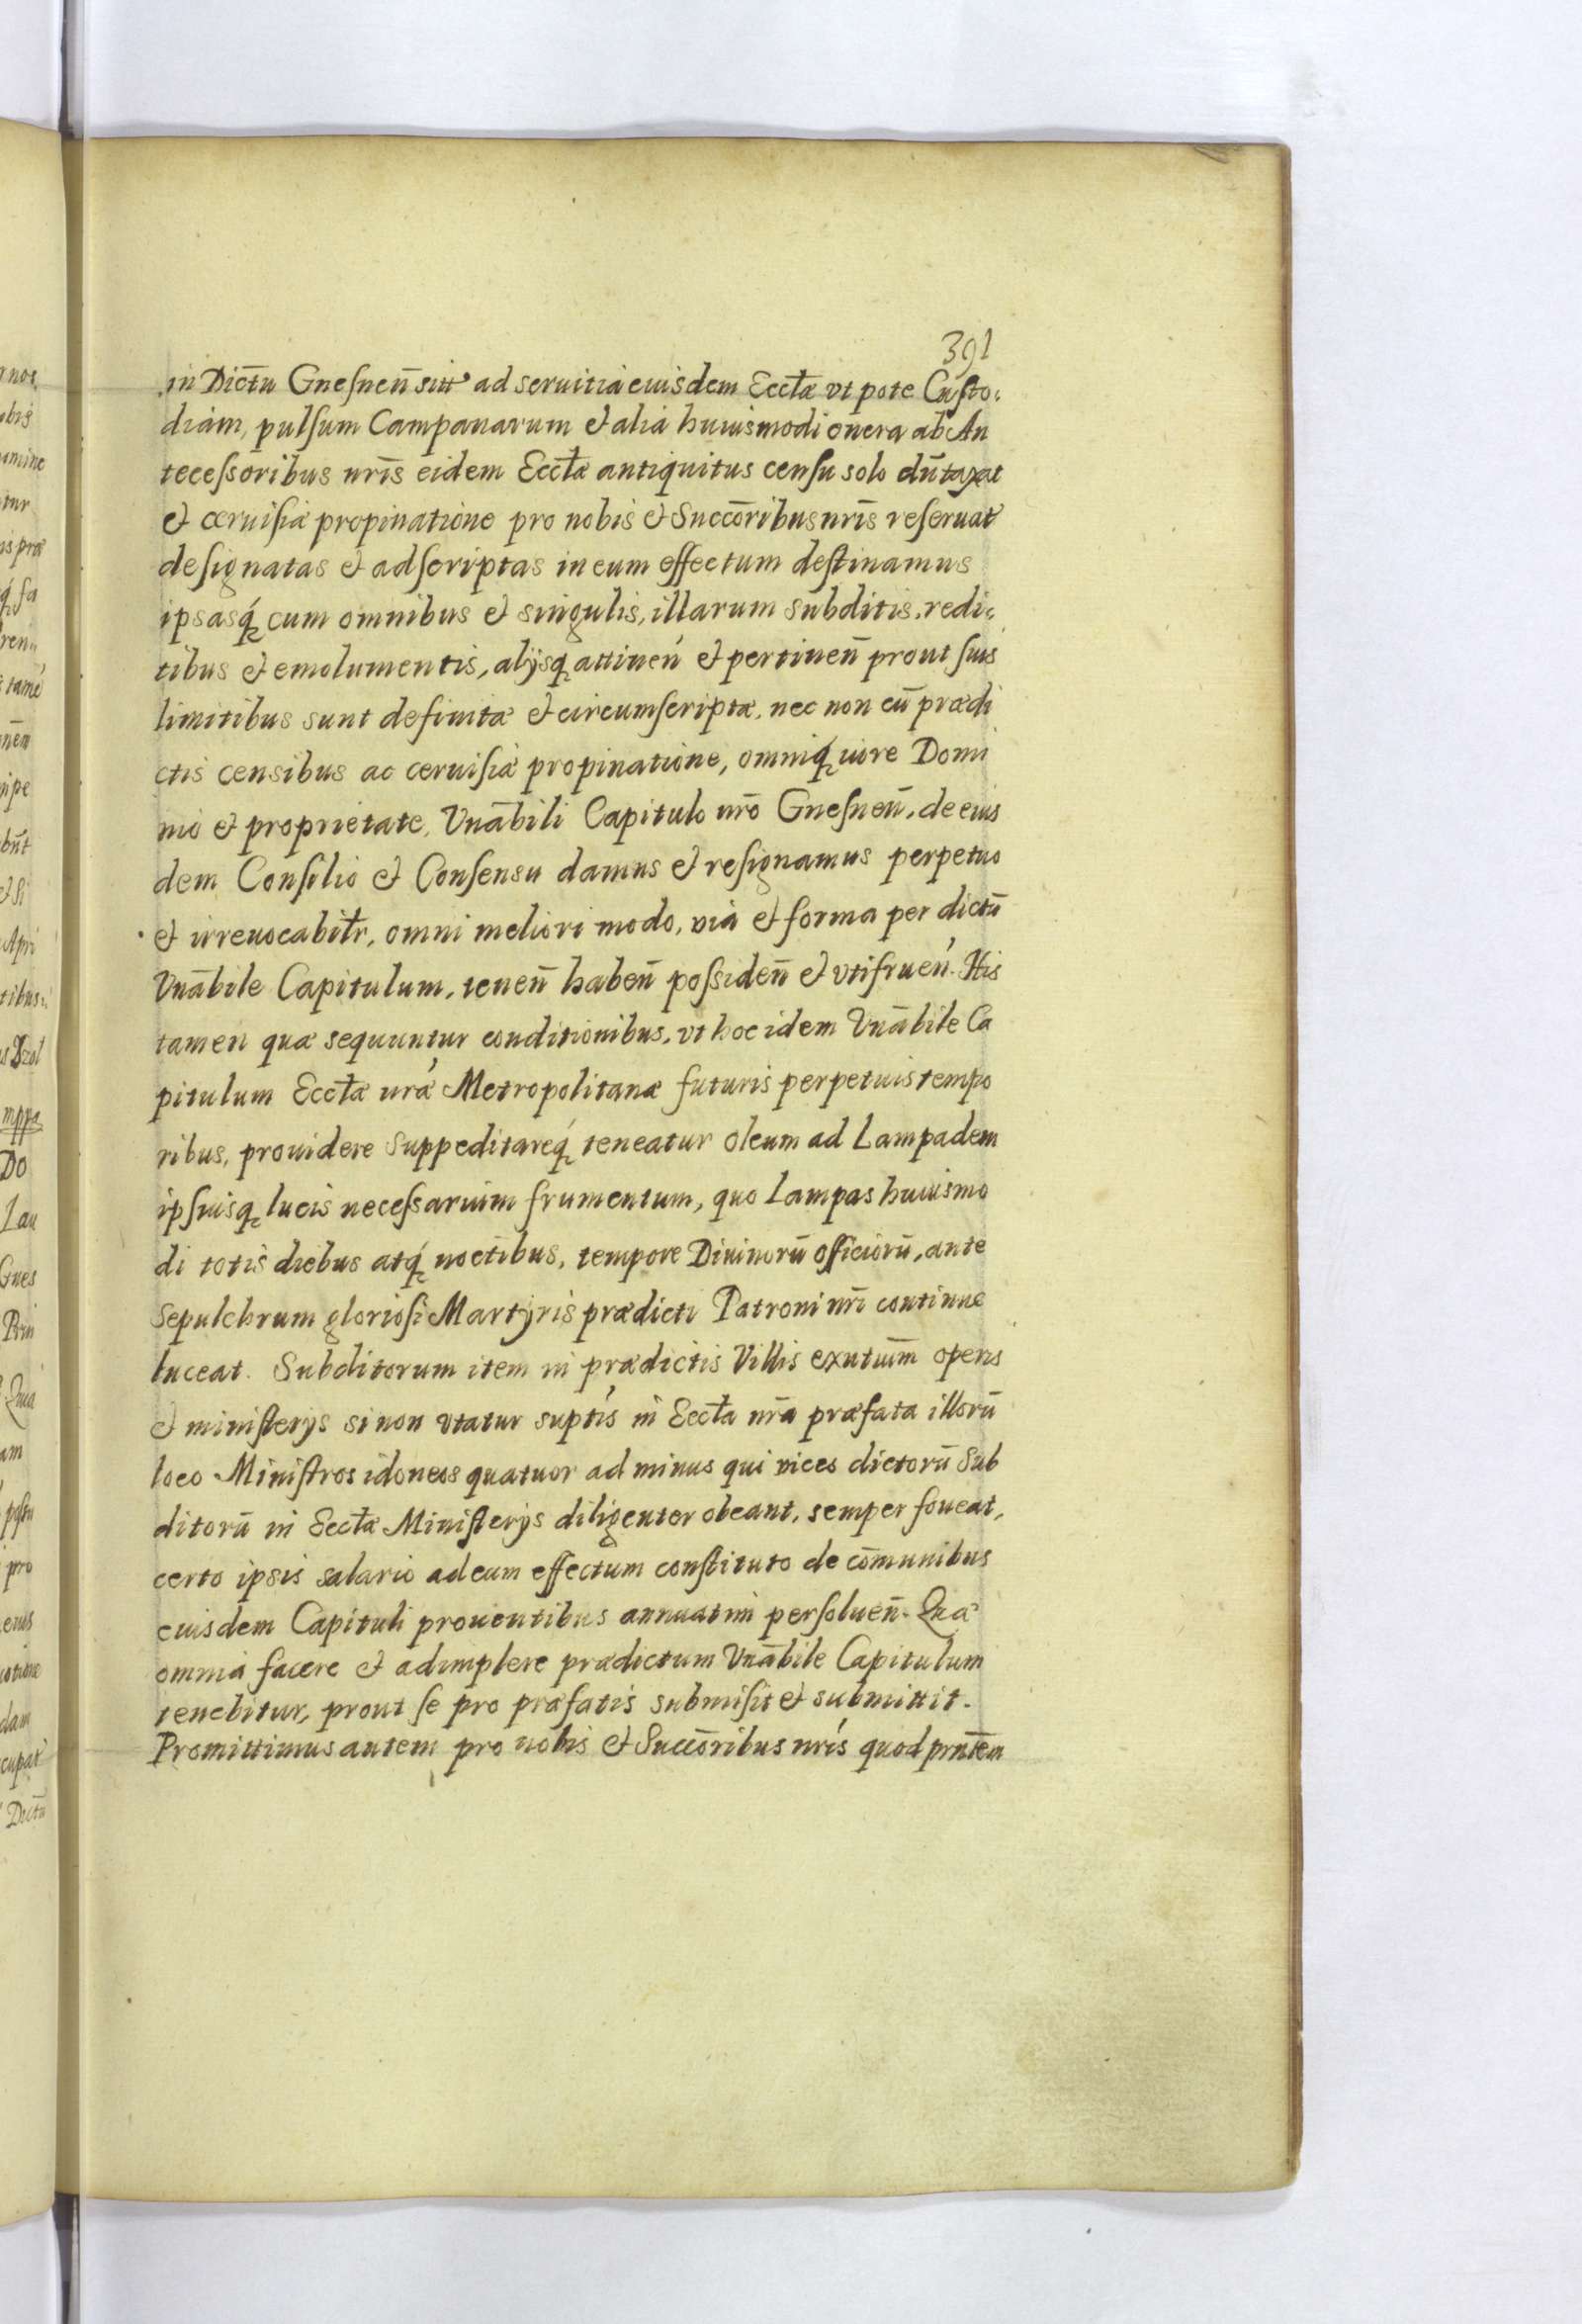 391
in Dictu Gnesnen̄ sitt ad seruitia eiusdem Eccłæ vt pote Custo:
diam, pulsum Campanarum & alia huiusmodi onera ab An
tecessoribus nrīs eidem Eccłæ antiquitus censu solo dūtaxat
& cæruisiæ propinatione pro nobis & Succōribus nrīs reseruat
designatas & adscriptas in eum effectum destinamus
ipsasq́ cum omnibus & singulis, illarum subditis, redi:
tibus & emolumentis, alijsq attinen̄ & pertinen̄ prout suis
limitibus sunt definitæ & circumscriptæ, nec non cū prædi
ctis censibus ac ceruisiæ propinatione, omniq́ iure Domi
nio & proprietate, Vnābili Capitulo nrō Gnesnen̄, de eius
dem Consilio & Consensu damus & resignamus perpetuo
& irreuocabilr̄, omni meliori modo, via & forma per dictū
Vnābile Capitulum, tenen̄ haben̄ possiden̄ & vtifruen̄. His
tamen quæ sequuntur conditionibus, vt hoc idem Vnābile Ca
pitulum Eccłæ nræ Metropolitanæ futuris perpetuis tempo
ribus, prouidere suppeditareq́ teneatur oleum ad Lampadem
ipsiusq lucis necessarium frumentum, quo Lampas huiusmo
di totis diebus atq́ noctibus, tempore Diuinorū officiorū, ante
sepulchrum gloriosi Martyris prædicti Patroni nrī continue
luceat. Subditorum item in prædictis Villis exntium̄ operis
& ministerijs si non vtatur suptis in Eccła nrā præfata illorū
loco Ministros idoneos quatuor ad minus qui vices dictorū Sub
ditorū in Eccłæ Ministerijs diligenter obeant, semper foueat,
certo ipsis salario ad eum effectum constituto de cōmunibus
eiusdem Capituli prouentibus annuatim persoluen̄. Quæ
omnia facere & adimplere prædictum Vnābile Capitulum
tenebitur, prout se pro præfatis submisit & submittit.
Promittimus autem pro nobis & Succōribus nrīs quod prntēm